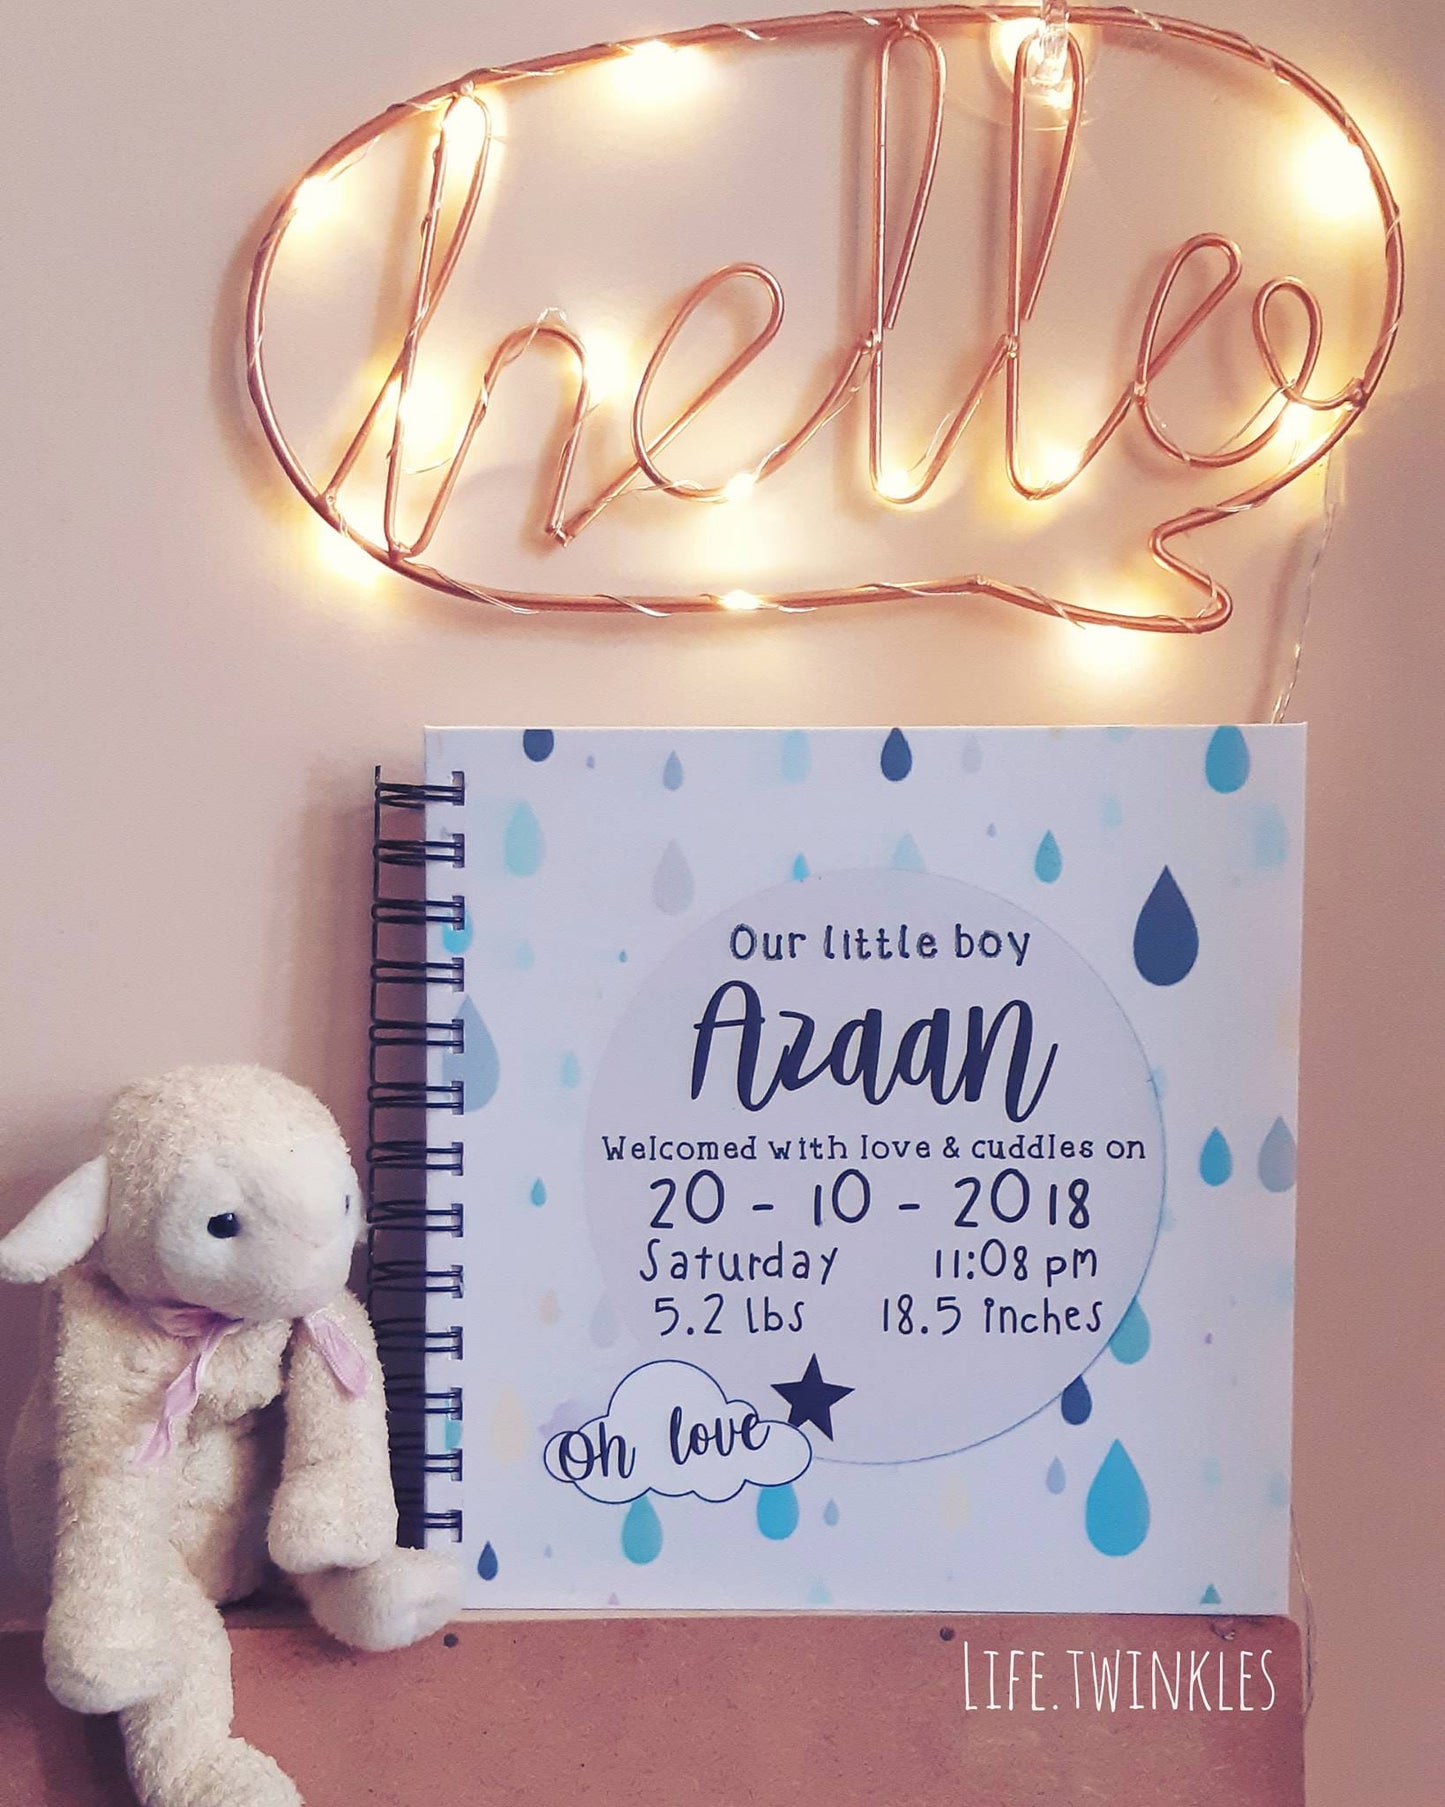 hello
Our little boy
Azaan
Welcomed with love & cuddles on
20 - 10 - 2018
Saturday 11:08 pm
5.2 lbs 18.5 inches
Oh love
LIFE.TWINKLES